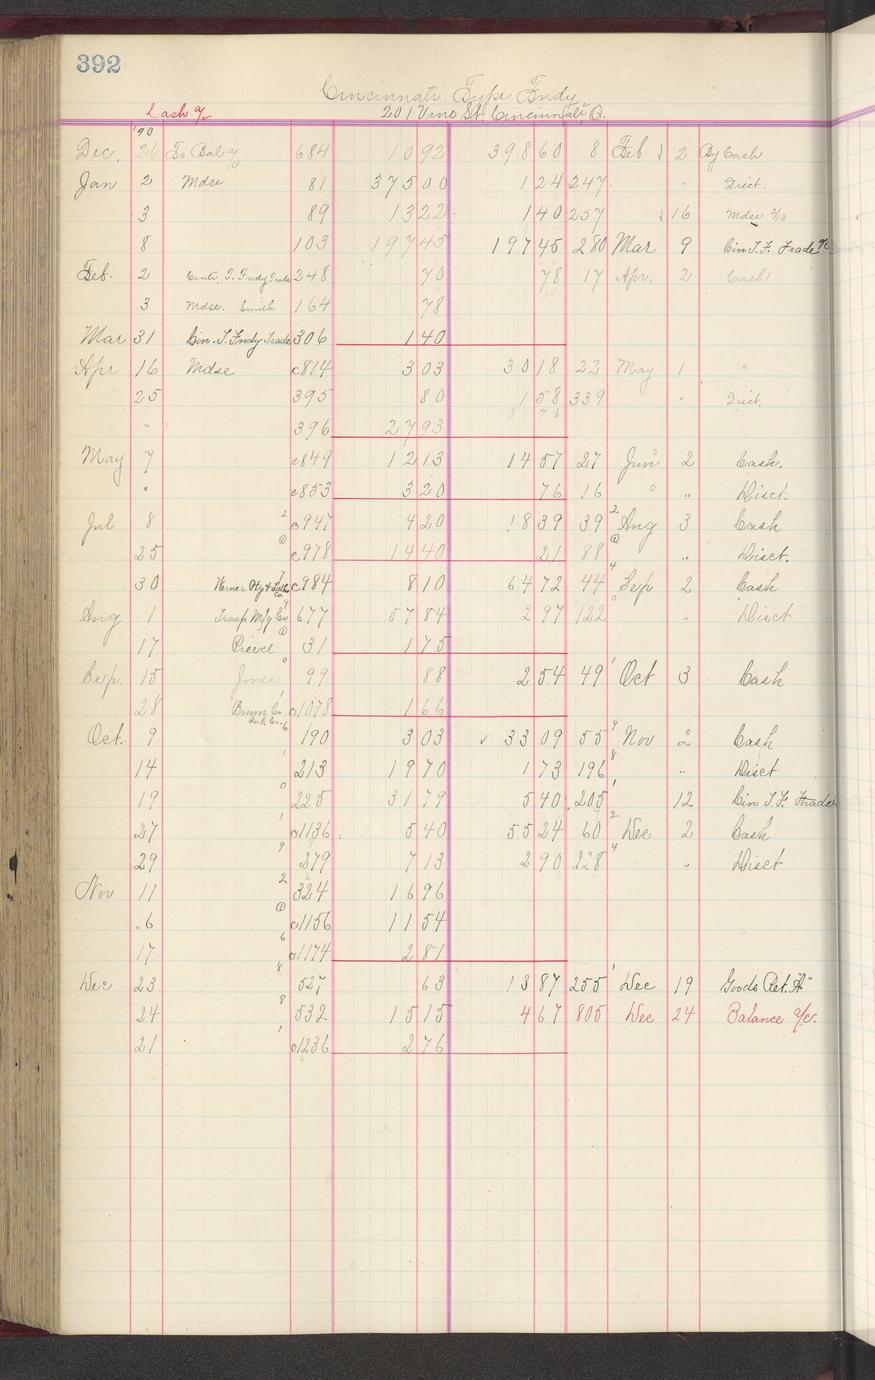 392
Cincinnati Type Fndy
Cash a/c 201 Vine St. Cincinnati, O.
'90
Dec. 26 To Bal a/c 684 10 92 398 60 8 Feb 2 By Cash
Jan 2 Mdse 81 375 00 1 24 247 " Disct.
3 89 13 22 1 40 257 16 Mdse 2/13
8 103 197 45 197 45 280 Mar 9 Cin T. F. Trade a/c
Feb. 2 Cinti. T. Fndy Trade 248 70 78 17 Apr. 2 Cash
3 Mdse. Smith 164 78
Mar 31 Cin. T. Fndy Trade 306 1 40
Apr 16 Mdse c814 3 03 30 18 22 May 1 "
25 395 80 1 58 339 " Disct.
" 396 27 93 31 76
May 7 c849 12 13 14 57 27 Jun 2 Cash.
" c853 3 20 76 16 " Disct.
Jul 8 c947 4 20 18 39 39 Aug 3 Cash
25 c978 14 40 21 88 " Disct.
30 c984 8 10 64 72 44 Sep 2 Cash
Aug 1 Mfg Co 677 57 84 2 97 122 " Disct
17 Pierce 31 1 75
Sep. 15 Jones 99 88 2 54 49 Oct 3 Cash
28 c1078 1 66
Oct. 9 190 3 03 33 09 55 Nov 2 Cash
14 213 19 70 1 73 196 " Disct
19 225 31 79 5 40 205 12 Cin T. F. Trade
27 c1136 5 40 55 24 60 Dec 2 Cash
29 279 7 13 2 90 228 " Disct
Nov 11 324 16 96
6 c1156 11 54
17 c1174 2 81
Dec 23 527 63 13 87 255 Dec 19 Goods Ret.
24 532 15 15 4 67 805 Dec 24 Balance a/c.
21 c1236 2 76